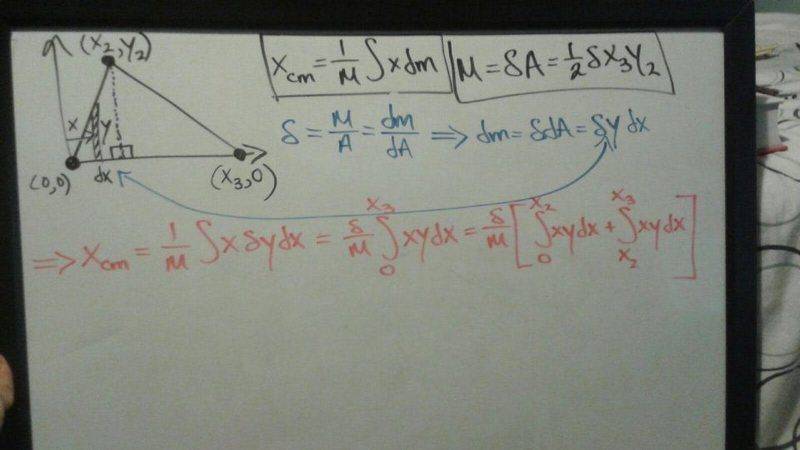 (X₂,Y₂)
X
y
(0,0)
dx
(X₃,0)
X_cm = 1/M ∫ x dm
M = δA = 1/2 δX₃Y₂
δ = M/A = dm/dA ⟹ dm = δdA = δy dx
⟹ X_cm = 1/M ∫ x δy dx = δ/M ∫₀^X₃ xy dx = δ/M [ ∫₀^X₂ xy dx + ∫_X₂^X₃ xy dx ]